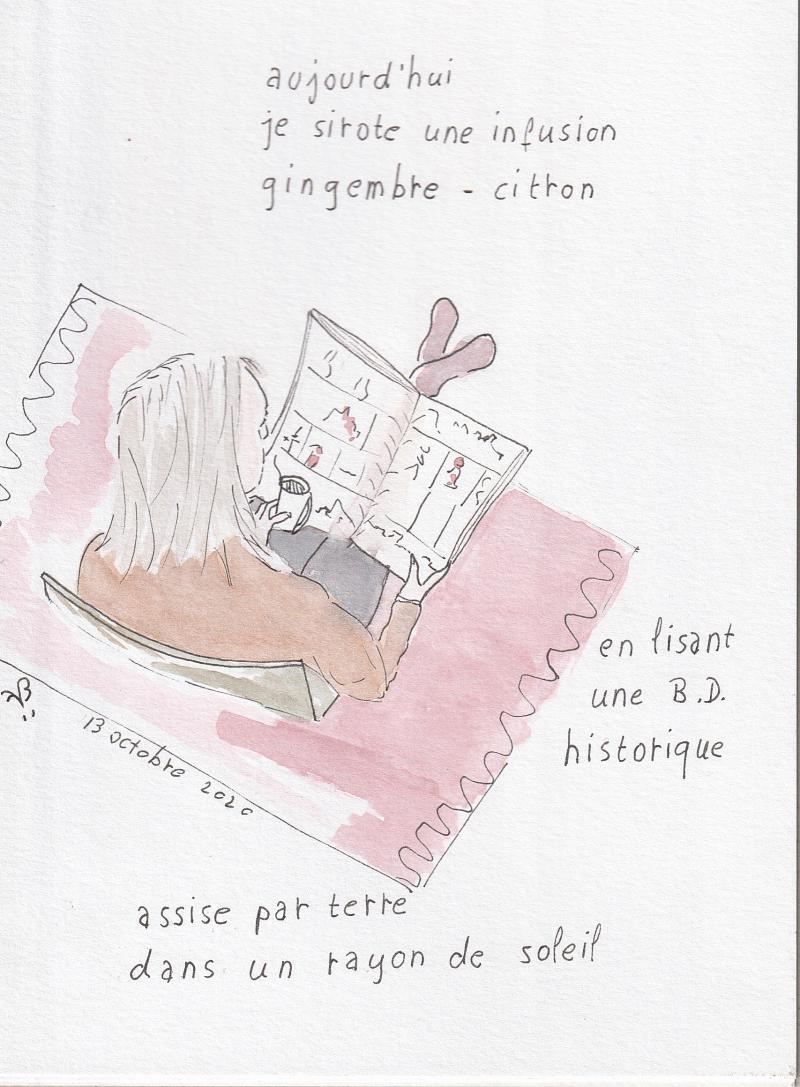 aujourd'hui
je sirote une infusion
gingembre - citron
en lisant
une B.D.
historique
13 octobre 2020
assise par terre
dans un rayon de soleil